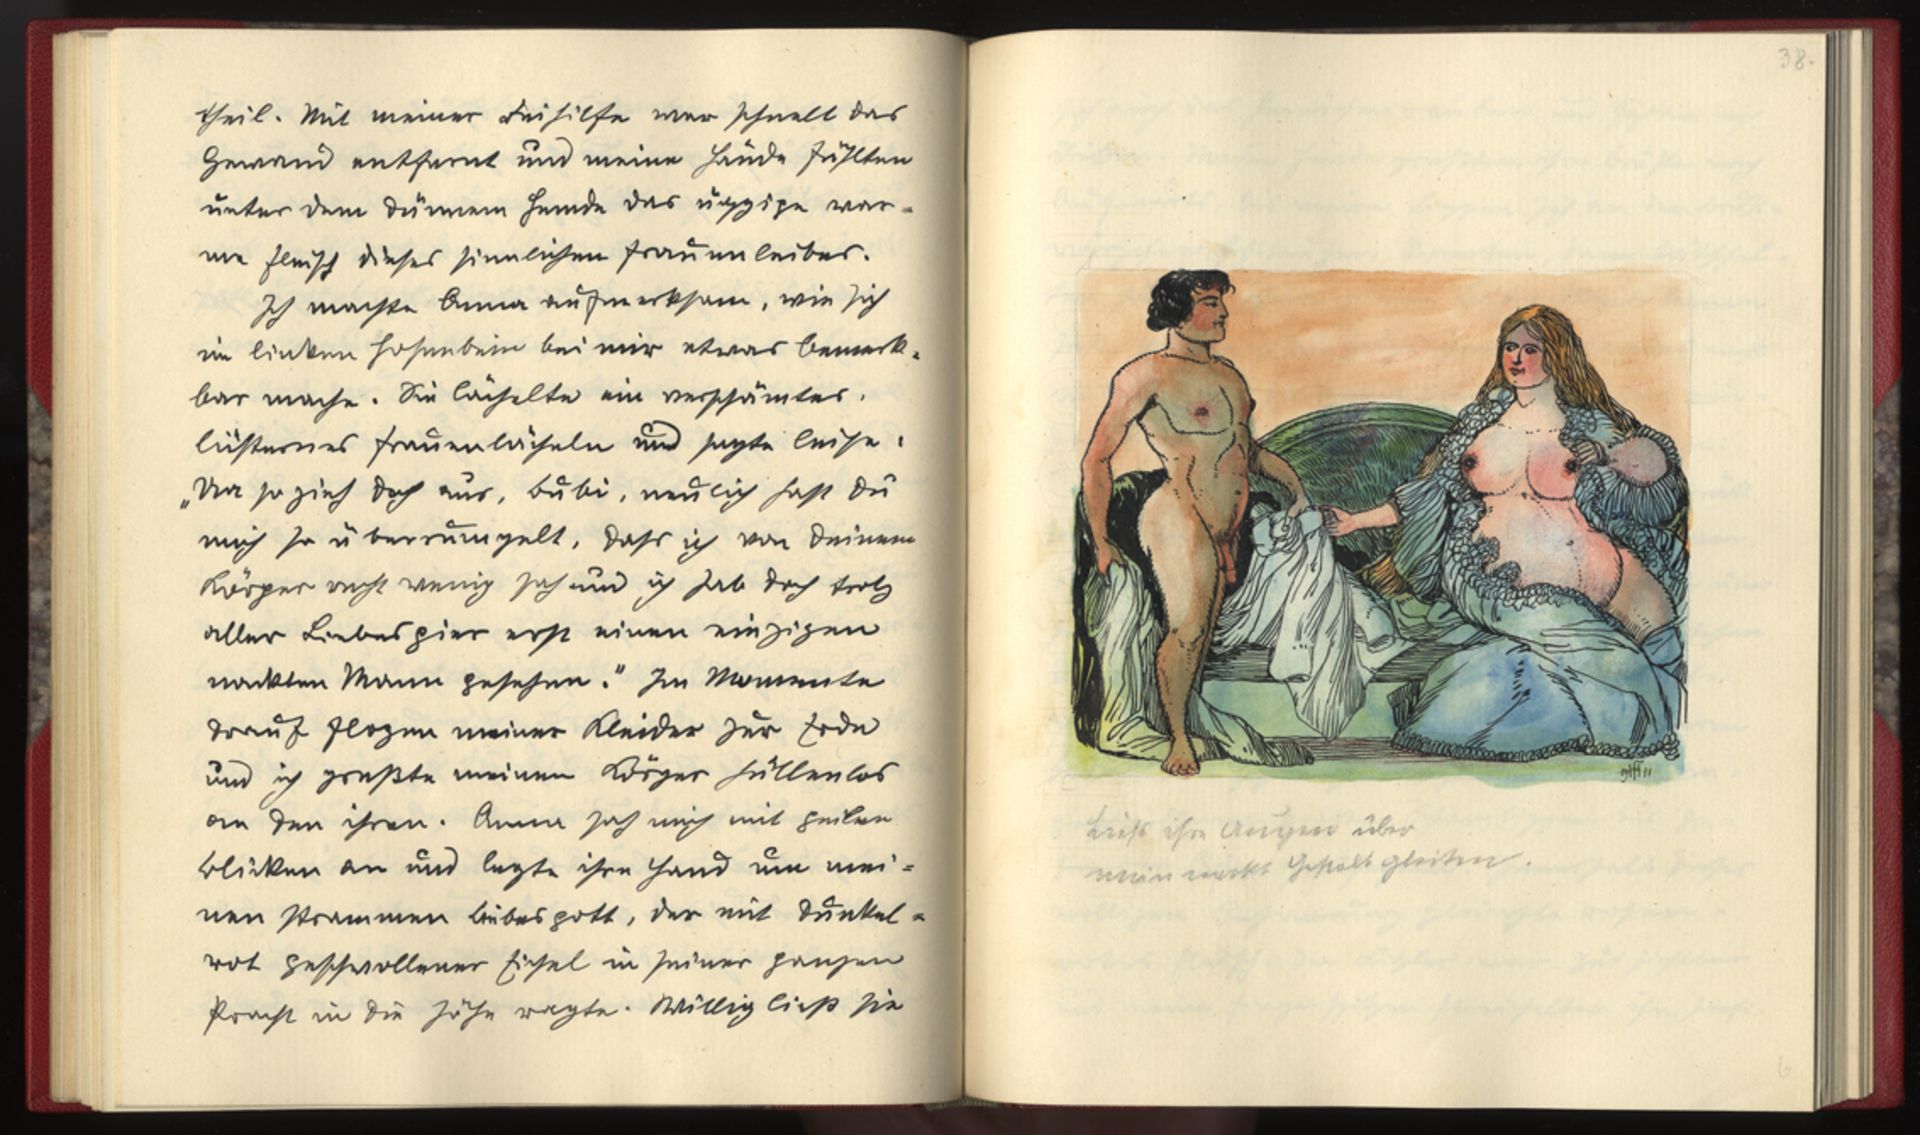 theil. Mit meiner Beihilfe war schnell das
Gewand entfernt und meine Hände fühlten
unter dem dünnem Hemde das üppige war-
me Fleisch dieses sinnlichen Frauenleibes.
Ich machte Anna aufmerksam, wie sich
im linken Hosenbein bei mir etwas bemerk-
bar mache. Sie lächelte ein verschämtes,
lüsternes Frauenlächeln und sagte leise:
„Na so zieh doch aus, Bubi, neulich hast du
mich so überrumpelt, dass ich von deinem
Körper recht wenig sah und ich hab doch trotz
aller Liebesgier erst einen einzigen
nackten Mann gesehen." Im Momente
drauf flogen meiner Kleider zur Erde
und ich presste meinen Körper hüllenlos
an den ihren. Anna sah mich mit geilen
Blicken an und legte ihre Hand um mei-
nen strammen Liebesgott, der mit dunkel-
rot geschwollener Eichel in seiner ganzen
Pracht in die Höhe ragte. Willig ließ sie
38.
Liess ihre Augen über
mein nackt Gestalt gleiten.
6